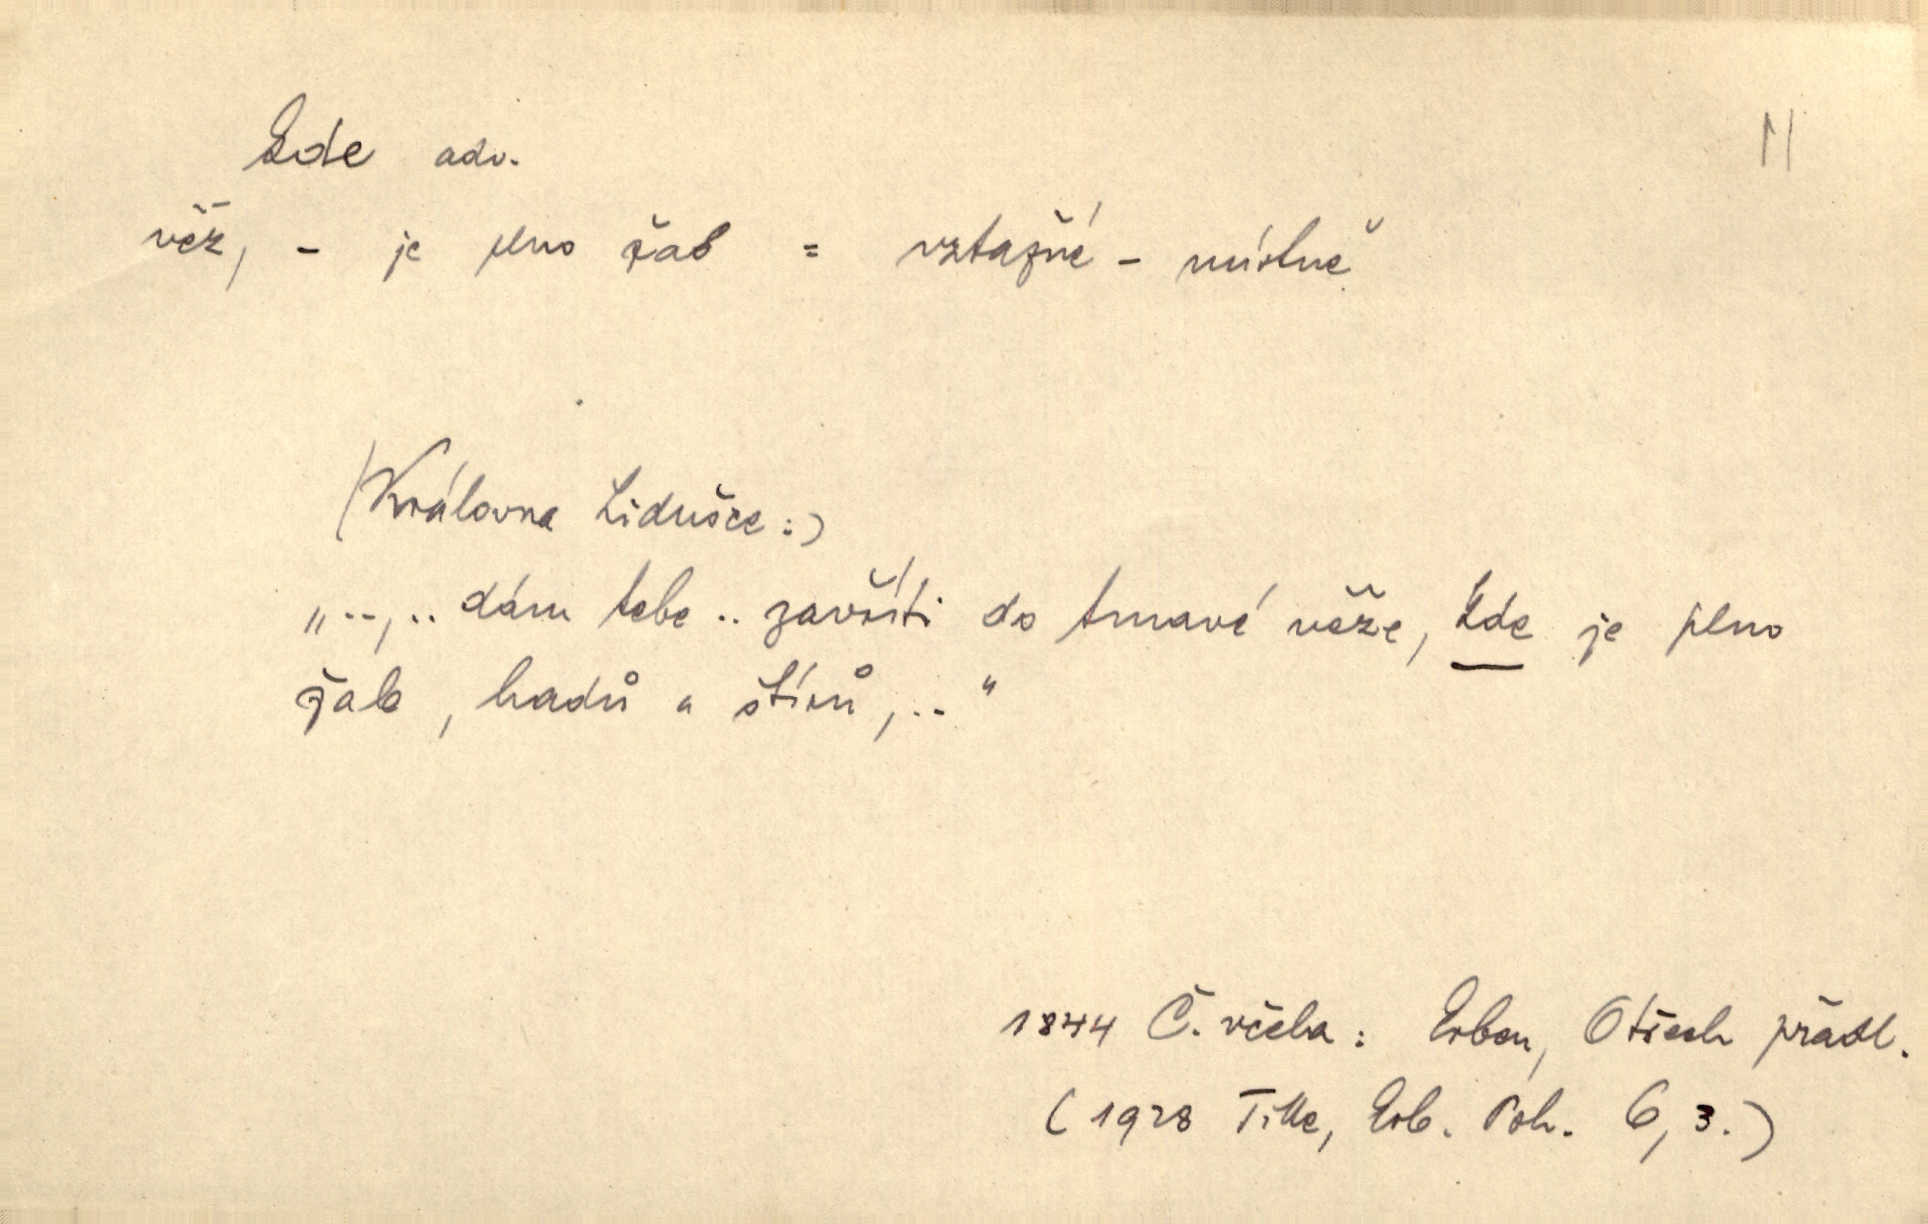 Zde adv.
11
věž, – je plno žab = vztažné – místně
(Královna Lidušce:)
„..,.. dám tebe .. zavříti do tmavé věže, zde je plno
žab, hadů a štírů, .."
1844 Č. včela: Erben, O třech přádl.
(1928 Tille, Erb. Poh. 6, 3.)